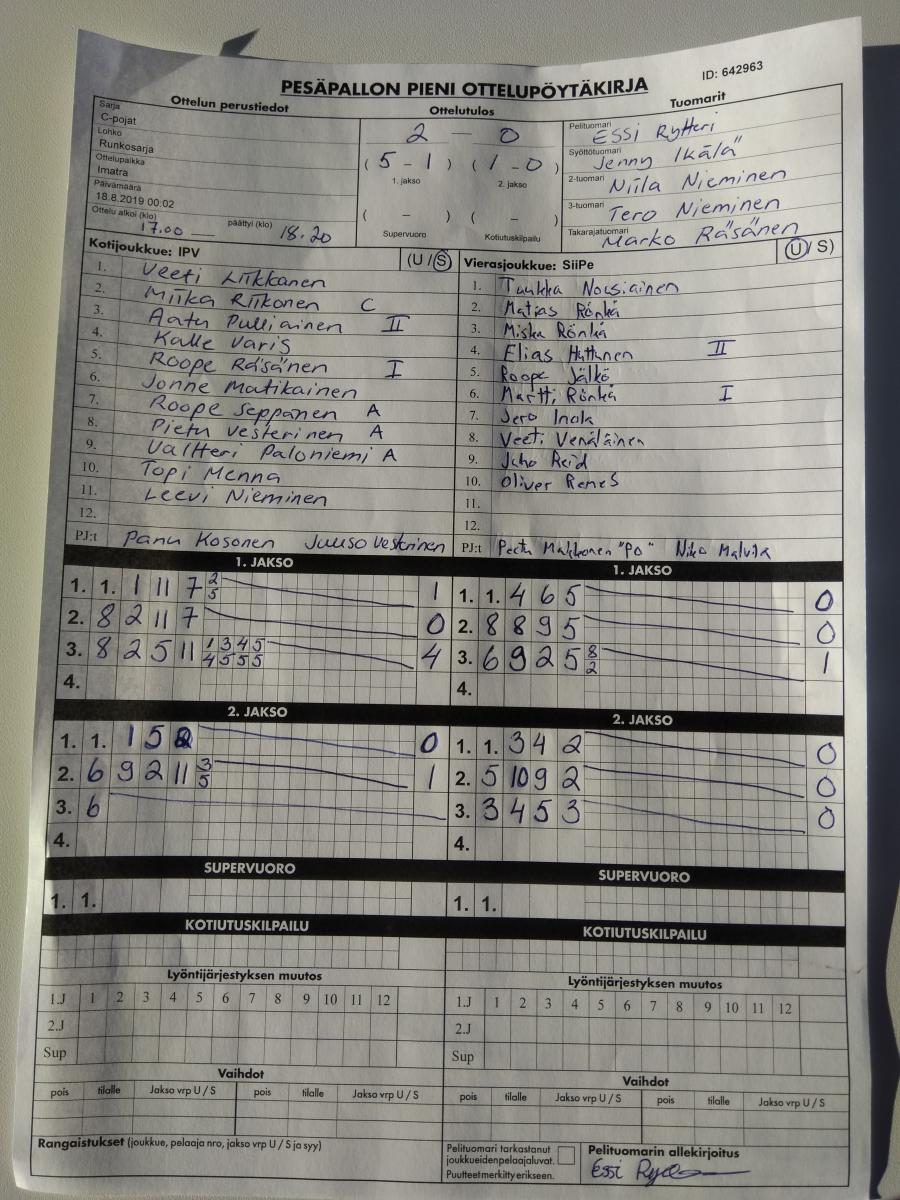 PESÄPALLON PIENI OTTELUPÖYTÄKIRJA
ID: 642963
Ottelun perustiedot
Sarja
C-pojat
Lohko
Runkosarja
Ottelupaikka
Imatra
Päivämäärä
18.8.2019 00:02
Ottelu alkoi (klo) 17.00 päättyi (klo) 18.20
Ottelutulos
2 — 0
(5 - 1) (1 - 0)
1. jakso 2. jakso
( - ) ( - )
Supervuoro Kotiutuskilpailu
Tuomarit
Pelituomari Essi Rytteri
Syöttötuomari Jenny Ikälä
2-tuomari Niila Nieminen
3-tuomari Tero Nieminen
Takarajatuomari Marko Räsänen
Kotijoukkue: IPV (U / S)
1. Veeti Liikkanen
2. Miika Riikonen C
3. Aatu Pulliainen II
4. Kalle Varis
5. Roope Räsänen I
6. Jonne Matikainen
7. Roope Seppänen A
8. Pietu Vesterinen A
9. Valtteri Paloniemi A
10. Topi Menna
11. Leevi Nieminen
12.
PJ:t Panu Kosonen Juuso Vesterinen
Vierasjoukkue: SiiPe (U / S)
1. Tuukka Nousiainen
2. Matias Rönkä
3. Miska Rönkä
4. Elias II
5. Roope Jälkö
6. Martti Rönkä I
7. Jero Inola
8. Veeti Venäläinen
9. Juho Reid
10. Oliver
11.
12.
PJ:t Makkonen "Po" Niko
1. JAKSO
1. 1. 1 11 7 2 5 1
2. 8 2 11 7 0
3. 8 2 5 11 1 3 4 5 4 5 5 5 4
4.
1. JAKSO
1. 1. 4 6 5 0
2. 8 8 9 5 0
3. 6 9 2 5 8 2 1
4.
2. JAKSO
1. 1. 1 5 0
2. 6 9 2 11 3 5 1
3. 6
4.
2. JAKSO
1. 1. 3 4 2 0
2. 5 10 9 2 0
3. 3 4 5 3 0
4.
SUPERVUORO
1. 1.
SUPERVUORO
1. 1.
KOTIUTUSKILPAILU
KOTIUTUSKILPAILU
Lyöntijärjestyksen muutos
1.J 1 2 3 4 5 6 7 8 9 10 11 12
2.J
Sup
Lyöntijärjestyksen muutos
1.J 1 2 3 4 5 6 7 8 9 10 11 12
2.J
Sup
Vaihdot
pois tilalle Jakso vrp U / S pois tilalle Jakso vrp U / S
Vaihdot
pois tilalle Jakso vrp U / S pois tilalle Jakso vrp U / S
Rangaistukset (joukkue, pelaaja nro, jakso vrp U / S ja syy)
Pelituomari tarkastanut
joukkueidenpelaajaluvat.
Puutteetmerkittyerikseen.
Pelituomarin allekirjoitus
Essi